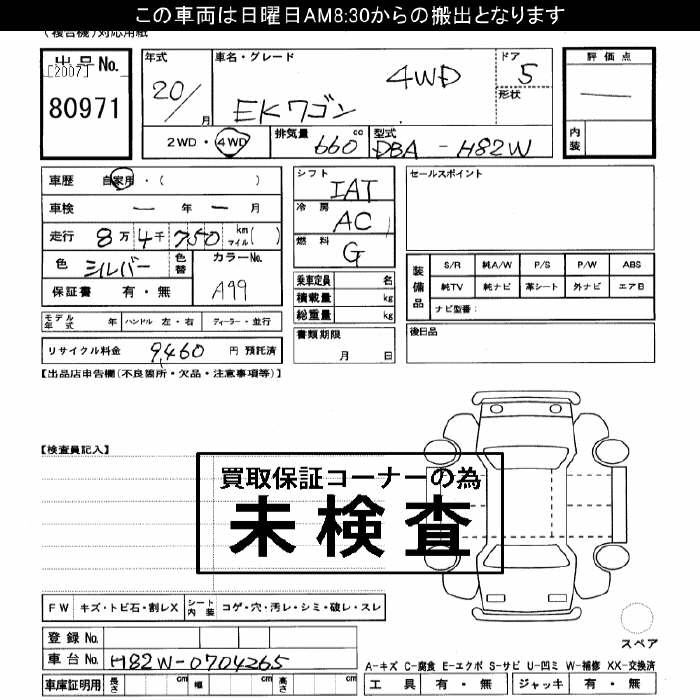 この車両は日曜日AM8:30からの搬出となります
(複合機)対応用紙
出品No.
[2007]
80971
年式
20/
月
車名・グレード
4WD
EKワゴン
ドア
5
形状
評価点
内装
2WD・4WD
排気量
660 cc
型式
DBA - H82W
車歴 自家用・( )
車検 ー 年 ー 月
走行 8万 4千 750 km マイル( )
色 シルバー
色替
カラーNo.
A99
保証書 有・無
シフト
IAT
冷房
AC
燃料
G
乗車定員 名
積載量 kg
総重量 kg
書類期限
月 日
セールスポイント
装備品
S/R 純A/W P/S P/W ABS
純TV 純ナビ 革シート 外ナビ エアB
ナビ型番:
後日品
モデル年式 年 ハンドル 左・右 ディーラー・並行
リサイクル料金 9,460 円 預託済
【出品店申告欄(不良箇所・欠品・注意事項等)】
【検査員記入】
買取保証コーナーの為
未検査
FW キズ・トビ石・割レX
シート内装 コゲ・穴・汚レ・シミ・破レ・スレ
登録No.
車台No. H82W-0704265
車庫証明用 長さ cm 幅 cm 高さ cm
スペア
A-キズ C-腐食 E-エクボ S-サビ U-凹ミ W-補修 XX-交換済
工具 有・無 ジャッキ 有・無